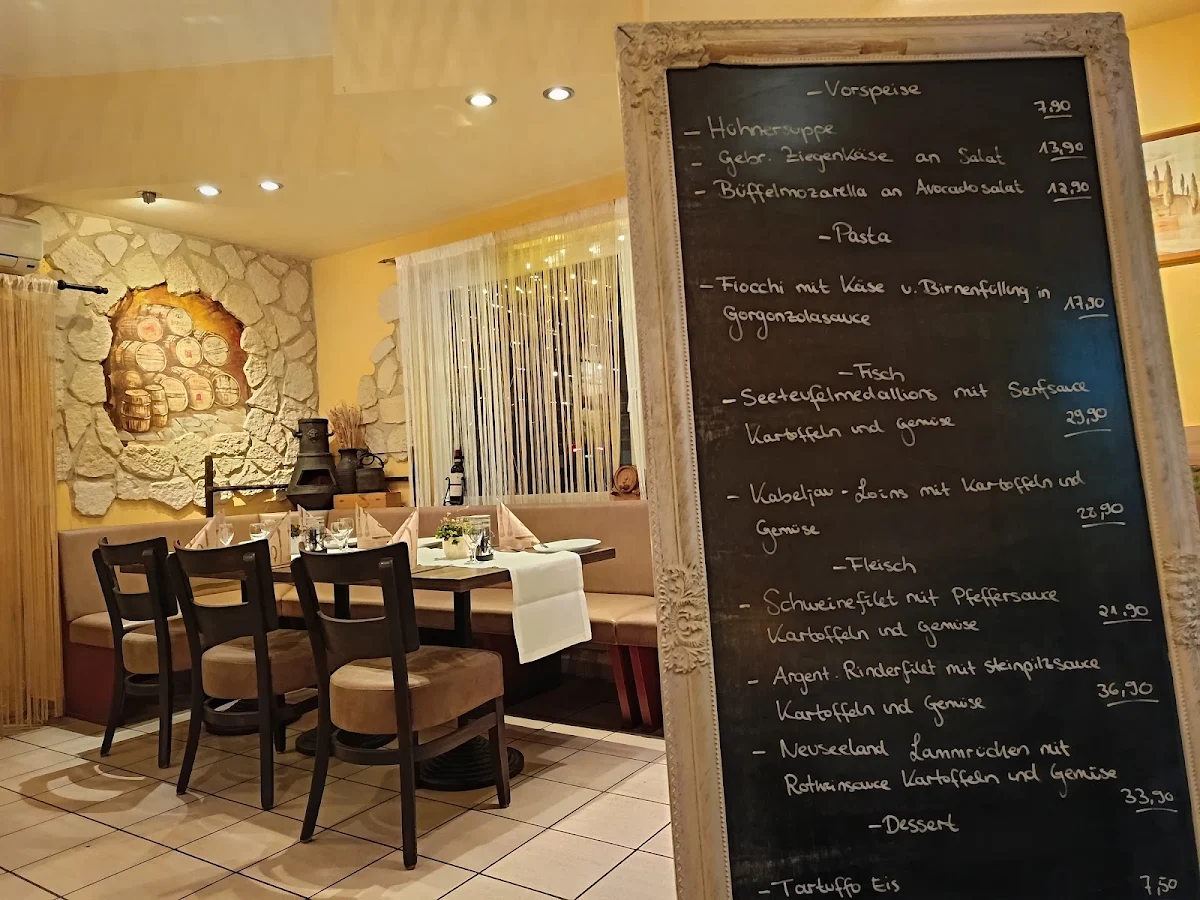 - Vorspeise
7,90
- Hühnersuppe
- Gebr. Ziegenkäse an Salat 13,90
- Büffelmozarella an Avocadosalat 12,90
- Pasta
- Fiocchi mit Käse u. Birnenfüllung in
Gorgonzolasauce 17,90
- Fisch
- Seeteufelmedallions mit Senfsauce
Kartoffeln und Gemüse 29,90
- Kabeljau - Loins mit Kartoffeln und
Gemüse 28,90
- Fleisch
- Schweinefilet mit Pfeffersauce
Kartoffeln und Gemüse 21,90
- Argent. Rinderfilet mit Steinpilzsauce
Kartoffeln und Gemüse 36,90
- Neuseeland Lammrücken mit
Rotweinsauce Kartoffeln und Gemüse
33,90
- Dessert
- Tartuffo Eis 7,50